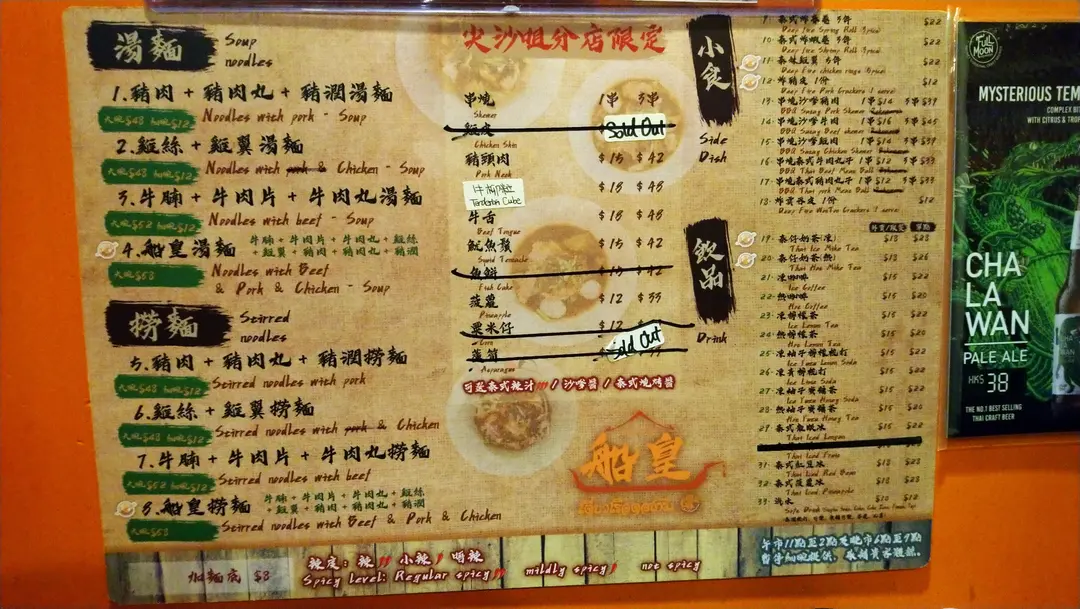 湯麵
Soup
noodles
1.豬肉 + 豬肉丸 + 豬潤湯麵
大碗$48 細碗$12
Noodles with pork - Soup
2.雞絲 + 雞翼湯麵
大碗$48 細碗$12
Noodles with pork & Chicken - Soup
3.牛腩 + 牛肉片 + 牛肉丸湯麵
大碗$52 細碗$12
Noodles with beef - Soup
4.船皇湯麵
牛腩 + 牛肉片 + 牛肉丸 + 雞絲
+ 雞翼 + 豬肉 + 豬肉丸 + 豬潤
大碗$58
Noodles with Beef
& Pork & Chicken - Soup
撈麵
Stirred
noodles
5.豬肉 + 豬肉丸 + 豬潤撈麵
大碗$48 細碗$12
Stirred noodles with pork
6.雞絲 + 雞翼撈麵
大碗$48 細碗$12
Stirred noodles with pork & Chicken
7.牛腩 + 牛肉片 + 牛肉丸撈麵
大碗$52 細碗$12
Stirred noodles with beef
8.船皇撈麵
牛腩 + 牛肉片 + 牛肉丸 + 雞絲
+ 雞翼 + 豬肉 + 豬肉丸 + 豬潤
大碗$58
Stirred noodles with Beef & Pork & Chicken
加麵底 $8
辣度：辣 小辣 唔辣
Spicy Level: Regular spicy mildly spicy not spicy
尖沙咀分店限定
串燒 1串 3串
Skewer
雞皮 Sold Out
Chicken Skin
豬頭肉 $15 $42
Pork Neck
牛柳粒 $18 $48
Tenderloin Cube
牛舌 $18 $48
Beef Tongue
魷魚鬚 $15 $42
Squid Tentacle
魚餅 $15 $42
Fish Cake
菠蘿 $12 $33
Pineapple
粟米仔 $12
Corn
露筍 Sold Out
Asparagus
可至泰式辣汁 / 沙嗲醬 / 泰式燒烤醬
船皇
小食
Side
Dish
飲品
Drink
9· 泰式炸春卷 5件 $22
Deep Fire Spring Roll 5pics
10· 泰式炸蝦卷 5件 $22
Deep Fire Shrimp Roll 5pics
11· 泰味雞翼 5件 $22
Deep Fire chicken wings 5pics
12· 炸豬皮 1份 $12
Deep Fire Pork Crackers (1 serve)
13· 串燒沙嗲豬肉 1串 $14 3串 $39
BBQ Satay Pork Skewer
14· 串燒沙嗲牛肉 1串 $16 3串 $45
BBQ Satay Beef Skewer
15· 串燒沙嗲雞肉 1串 $14 3串 $39
BBQ Satay Chicken Skewer
16· 串燒泰式牛肉丸子 1串 $12 3串 $33
BBQ Thai Beef Meat Ball
17· 串燒泰式豬肉丸子 1串 $12 3串 $33
BBQ Thai pork Meat Ball
18· 炸雲吞皮 1份 $12
Deep Fire WonTon Crackers (1 serve)
19· 泰式奶茶(凍) $18 $23
Thai Ice Milk Tea
20· 泰式奶茶(熱) $18 $26
Thai Hot Milk Tea
21· 凍咖啡 $15 $22
Ice Coffee
22· 熱咖啡 $15 $20
Hot Coffee
23· 凍檸檬茶 $15 $22
Ice Lemon Tea
24· 熱檸檬茶 $15 $20
Hot Lemon Tea
25· 凍柚子檸檬梳打 $15 $22
Ice Yuzu Lemon Soda
26· 凍青檸梳打 $15 $22
Ice Lime Soda
27· 凍柚子蜜糖茶 $15 $22
Ice Yuzu Honey Soda
28· 熱柚子蜜糖茶 $15 $20
Hot Yuzu Honey Tea
29· 泰式龍眼冰 $15 $20
Thai Iced Longan
31· 泰式紅豆冰 $18 $23
Thai Iced Red Bean
32· 泰式菠蘿冰 $18 $23
Thai Iced Pineapple
33· 汽水 $10 $12
Soft Drink
午市11點至2點及晚市6點至9點
暫停細碗提供，敬請貴客體諒.
FULL MOON
MYSTERIOUS TEM
COMPLEX BE
WITH CITRUS & TROP
CHA
LA
WAN
PALE ALE
HK$ 38
THE NO.1 BEST SELLING
THAI CRAFT BEER